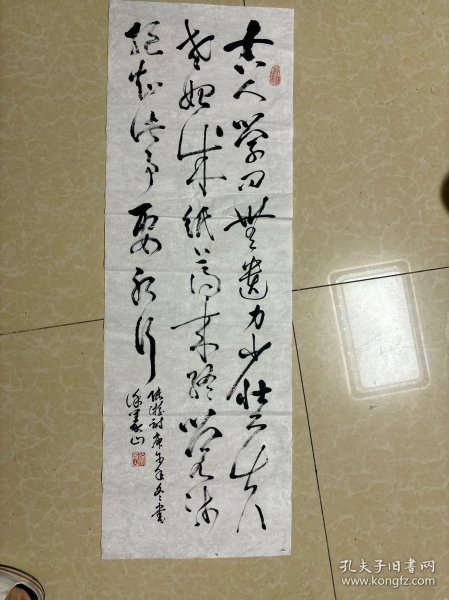 古人学问無遗力少壮工夫
老始成纸上得来终觉浅
绝知此事要躬行
陆游诗庚午年冬书
孔夫子旧书网
www.kongfz.com